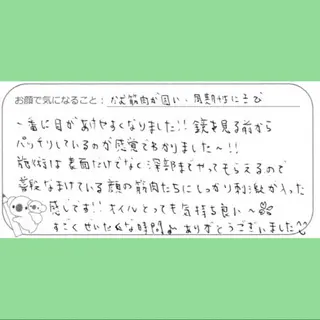 お顔で気になること：かむ筋肉が固い、周期性にきび
一番に目があけやすくなりました!! 鏡を見る前から
パッチリしているのが感覚でわかりました〜!!
施術は表面だけでなく深部までやってもらえるので
普段なまけている顔の筋肉たちにしっかり刺激が入った
感じです!! オイルとっても気持ち良い〜
すごくぜいたくな時間♪ ありがとうございました♡